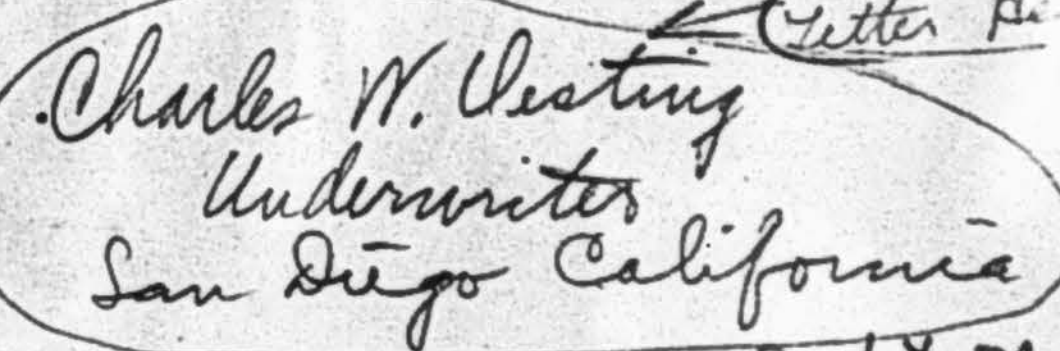 Letter
Charles W. Uesting
Underwriter
San Diego California